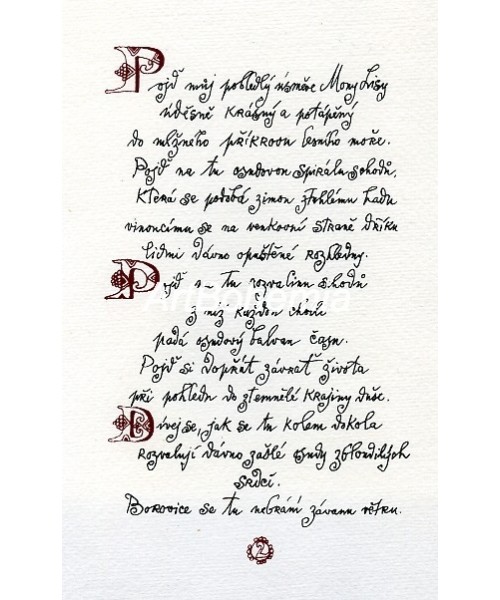 Pojď můj pobledlý úsměve Mony Lisy
úděsně krásný a potápěný
do mlžného příkrovu lesního moře.
Pojď na tu osudovou spirálu schodů,
která se podobá zimou ztuhlému hadu
vinoucímu se na venkovní straně dříku
lidmi dávno opuštěné rozhledny.
Pojď s tu rozvalinu schodů
z níž každou chvíli
padá osudový balvan času.
Pojď si dopřát závrať života
při pohledu do ztemnělé krajiny duše.
Dívej se, jak se tu kolem dokola
rozvalují dávno zašlé osudy zbloudilých
srdcí.
Borovice se tu nebrání závanu větru.
2